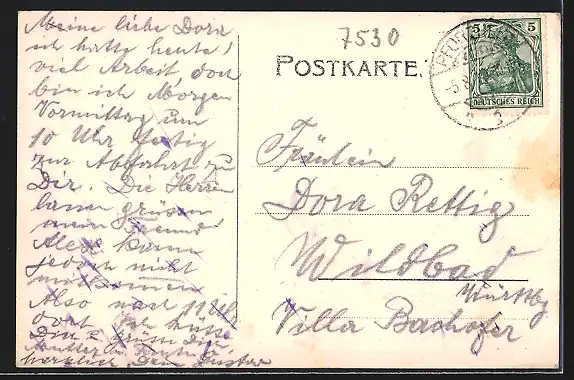 Meine liebe Dora
ich hatte heute
viel Arbeit, doch
bin ich Morgen
Vormittag um
10 Uhr fertig
zur Abfahrt zu
Dir. Die Herren
lann grüssen
mein Freund
Alex kann
jedoch nicht
Also nach 11 Uhr
dort. Ich küsse
Dich
herzlich Dein Gustav
7530
POSTKARTE.
5 5
DEUTSCHES REICH
Fräulein
Dora Rettig
Wildbad
Württbg
Villa Bachofer